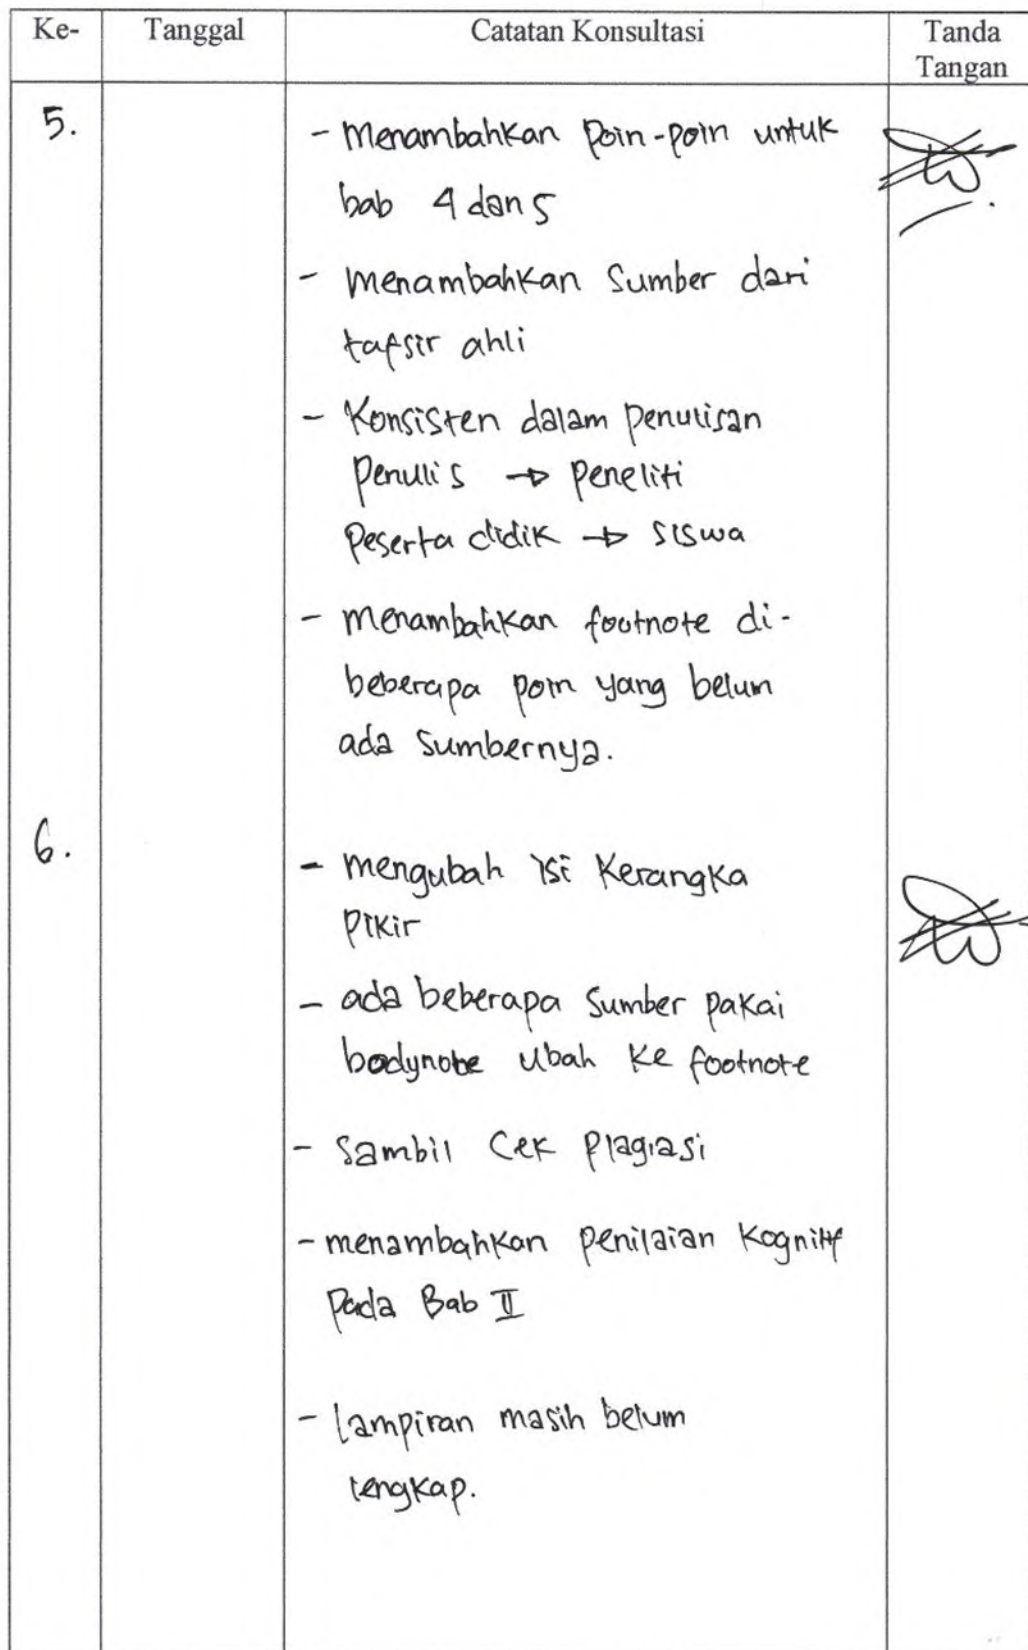 Ke- Tanggal Catatan Konsultasi Tanda
Tangan
5. - Menambahkan Poin-poin untuk
bab 4 dan 5
- Menambahkan Sumber dari
tafsir ahli
- Konsisten dalam Penulisan
Penulis → Peneliti
Peserta didik → Siswa
- Menambahkan footnote di-
beberapa poin yang belum
ada Sumbernya.
6. - Mengubah isi Kerangka
Pikir
- ada beberapa Sumber pakai
bodynote ubah ke footnote
- Sambil Cek Plagiasi
- menambahkan Penilaian Kognitif
Pada Bab II
- lampiran masih belum
lengkap.